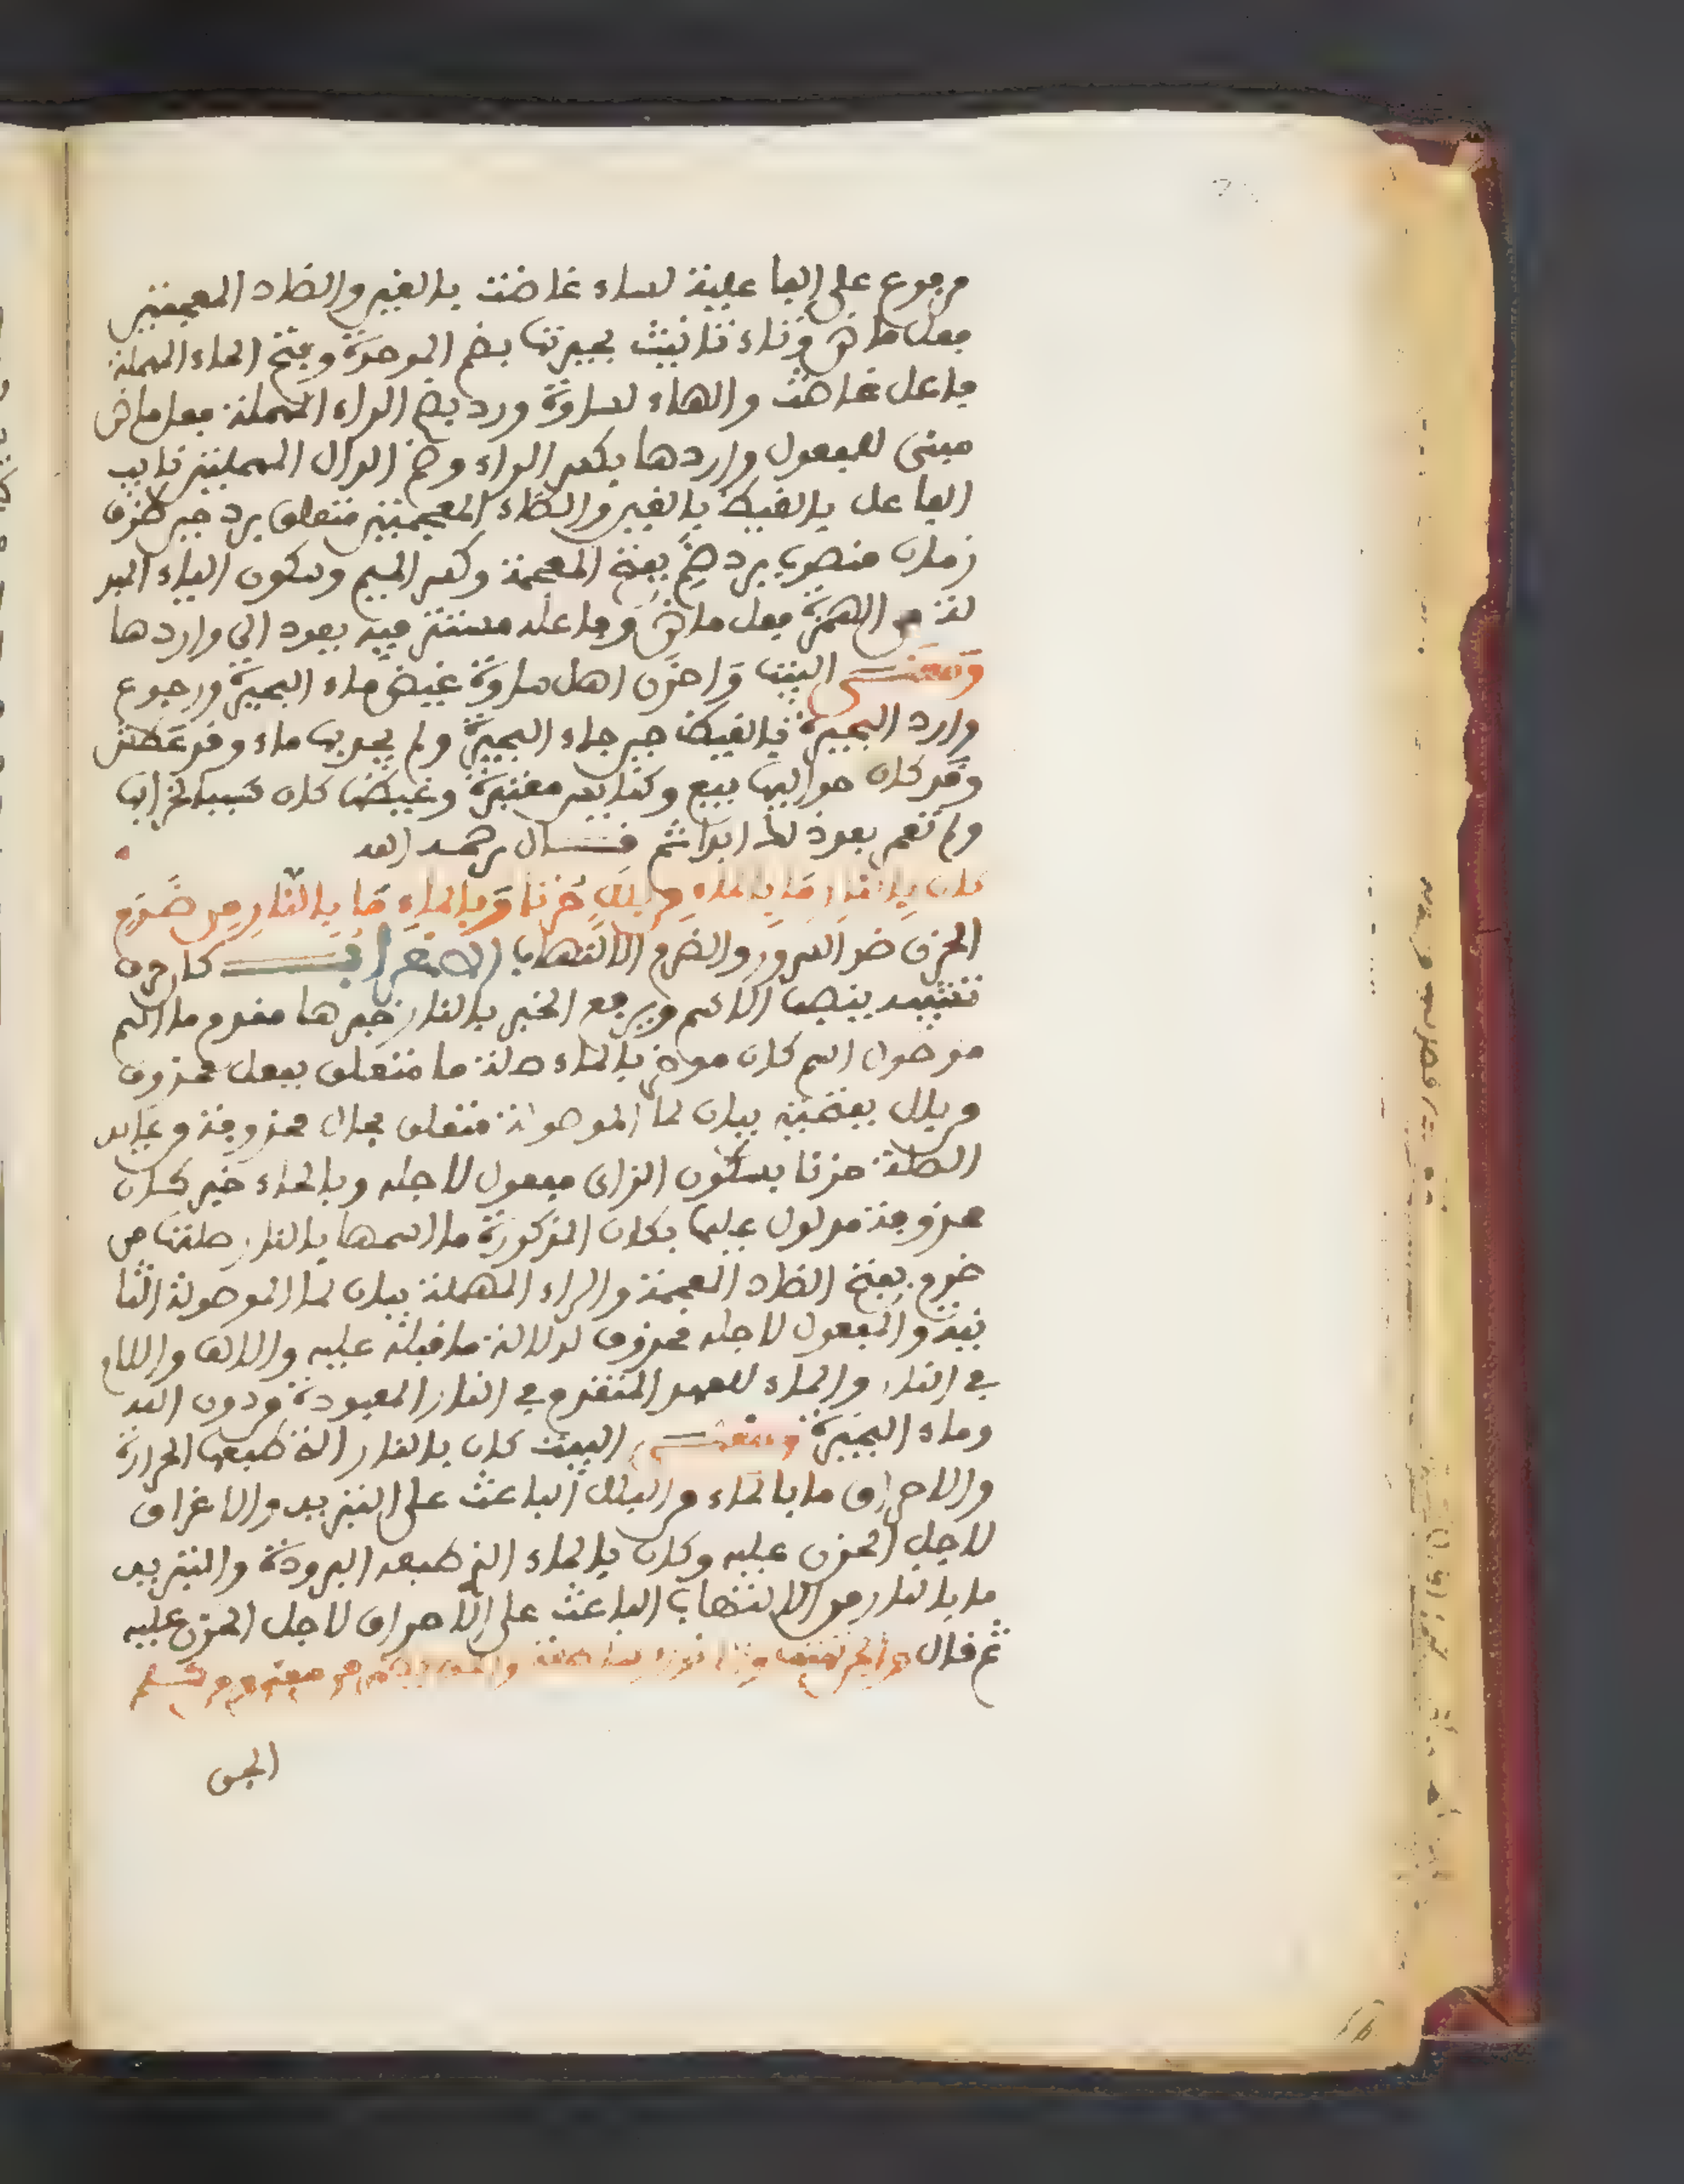 مرفوع على الفاعلية لساء غاضت بالغين والضاد المعجمتين
فعل ماض وتاء تانيث بحيرتها بضم الموحدة وفتح الحاء المهملة
فاعل غاضت والهاء لساوة ورد بضم الراء المهملة فعل ماض
مبنى للمفعول واردها بكسر الراء وضم الدال المهملتين نايب
الفاعل بالغيظ بالغين والظاء المعجمتين متعلق برد حين ظرف
زمان منصوب برد ظمي بفتح المعجمة وكسر الميم وسكون الياء المبد
لة من الهمزة فعل ماض وفاعله مستتر فيه يعود الى واردها
ومعنى البيت واحزن اهل ساوة غيض ماء البحيرة ورجوع
وارد البحيرة بالغيظ حين جاء البحيرة ولم يجد بها ماء وقد عطش
وقد كان حواليها بيع وكنايس معتبرة وغيضها كان سببا لخرابها
ولم تعم بعود لها ابدا ثم قال رحمه الله
كان بالنار ما بالماء من بلل حزنا وبالماء ما بالنار من ضرم
الحزن ضد السرور والضرم الالتهاب الاعراب كان حرف
تشبيه ينصب الاسم ويرفع الخبر بالنار خبرها مقدم ما اسم
موصول اسم كان موخر بالماء صلة ما متعلق بفعل محذوف
من بلل بفتحتين بيان لما الموصولة متعلق بحال محذوفة وعايد
الصلة حزنا بسكون الزاى مفعول لاجله وبالماء خبر كان
محذوفة مدلول عليها بكان المذكورة ما اسمها بالنار صلتها من
ضرم بفتح الضاد المعجمة والراء المهملة بيان لما الموصولة الثا
نية والمفعول لاجله محذوف لدلالة ما قبله عليه والالف واللام
في النار والماء للعهد المتقدم في النار المعبودة من دون الله
وماء البحيرة ومعنى البيت كان بالنار التي طبعها الحرارة
والاحراق ما بالماء من البلل الباعث على التبريد والاغراق
لاجل الحزن عليه وكان بالماء الذي طبعه البرودة والتبريد
ما بالنار من الالتهاب الباعث على الاحراق لاجل الحزن عليه
ثم قال والجن تهتف والانوار ساطعة والحق يظهر من معنى ومن كلم
الجن